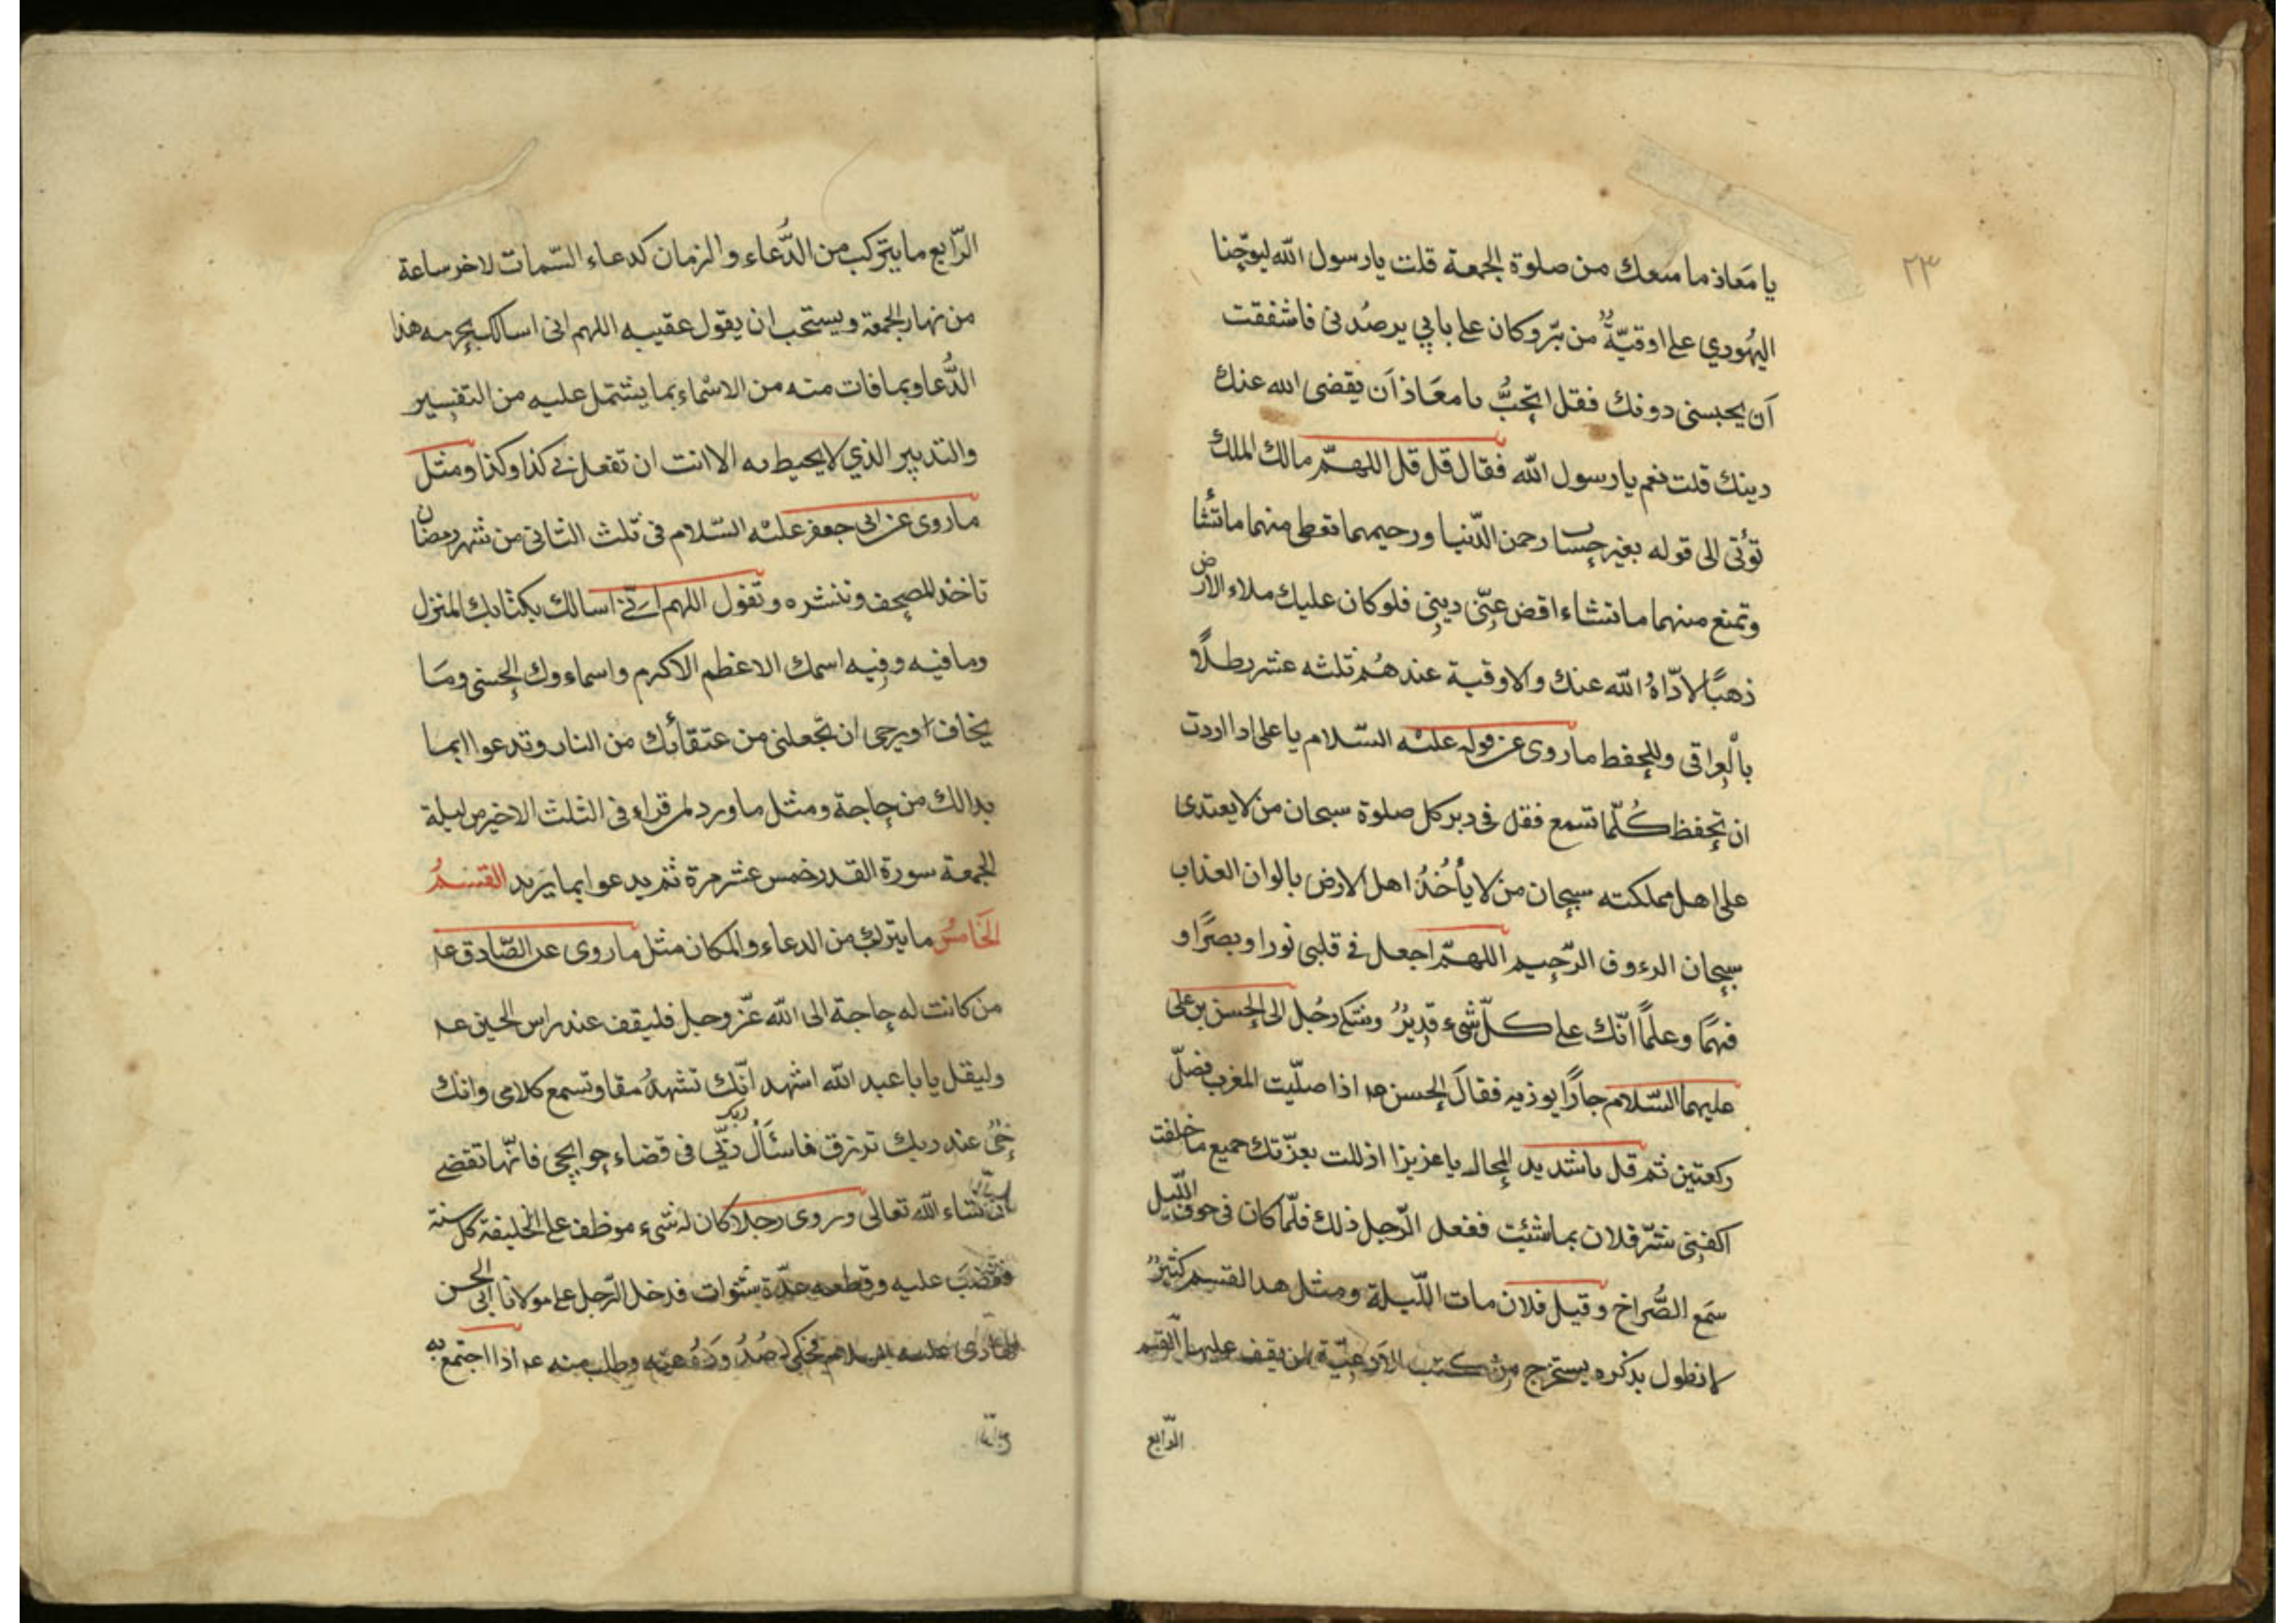 ٢٣
يا مَعاذ ما منعك من صلوة الجمعة قلت يا رسول الله ليوحّنا
اليهُودي على اوقيّةٌ من بّر وكان على بابي يرصُدنى فاشفقت
اَن يحبسنى دونك فقل اتحبُّ يا معَاذ اَن يقضى الله عنك
دينك قلت نعم يا رسول الله فقال قل قل اللهمّ مالك الملك
تؤتى الى قوله بغير حساب رحمن الدّنيا ورحيمهما تعطى منهما ما تشأ
وتمنع منهما ما تشاء اقض عنّى دينى فلو كان عليك ملاء الارض
ذهبًا لادّاهُ الله عنك والاوقية عندهُم ثلثه عشر رطلًا
بالعِراقى وللحفظ ما روى عن قوله عليه السّلام يا على اذا اردت
ان تحفظ كُلّما تسمع فقل فى دبر كل صلوة سبحان من لا يعتدى
على اهل مملكته سبحان من لا يأخُذُ اهل الارض بالوان العذاب
سبحان الرءوف الرّحيم اللهمّ اجعل فى قلبى نورا وبصرًا و
فهمًا وعلمًا انّك على كلّ شىء قديرٌ وشكى رجُل الى الحسن بن على
عليهما السّلام جارًا يوذيه فقالَ الحسن عه اذا صلّيت المغرب فصلّ
ركعتين ثم قل يا شديد المحال يا عزيزا اذللت بعزّتك جميع ما خلقت
اكفنى شرّ فلان بما شئت ففعل الرّجل ذلك فلمّا كان فى جوف اللّيل
سَمع الصُّراخ وقيل فلان مات اللّيلة ومثل هدا القسم كثيرٌ
لا نطول بذكره يستخرج من كتب الادعيّة لمن يقف عليها القسم
الرّابع
الرّابع ما يتركب من الدُّعاء والزمان كدعاء السّمات لاخر ساعة
من نهار الجمعة ويستحب ان يقول عقيبه اللهم انى اسالك بحرمه هذا
الدُّعا وبما فات منه من الاسْماء بما يشتمل عليه من التفسير
والتدبير الذي لا يحيط به الا انت ان تفعل بى كذا وكذا ومثل
ما روى عن ابى جعفر عليه السّلام فى ثلث الثانى من شهر رمضان
تاخذ المصحف وتنشره وتقول اللهم انّى اسالك بكتابك المنزل
وما فيه وفيه اسمك الاعظم الاكرم واسماءوك الحسنى ومَا
يخاف او يرجى ان تجعلنى من عتقائك من النار وتدعوا بما
بدالك من حاجة ومثل ما ورد لمن قراء فى الثلث الاخير من ليلة
الجمعة سورة القدر خمس عشر مرة ثم يدعوا بما يَريد القسمُ
الخَامسُ ما يتركب من الدعاء والمكان مثل ما روى عن الصّادق عه
من كانت له حاجة الى الله عّز وجل فليقف عند راس الحسين عه
وليقل يا با عبد الله اشهد انّك تشهدُ مقا وتسمع كلامى وانك
حَىٌّ عند ربك ترزق فاسئَال ربك ربّى فى قضاء حوايجى فانّها تقضى
ان شاء الله تعالى وروى رجلا كان له شىء موظف على الخليفة كل سنة
فغضبَ عليه وقطعه عدّة سنوات فدخل الرّجل على مولانا ابى الحسن
الهادى عليه السلام فحكى صُدُ ودَهُ عنه وطلب منه عه اذا اجتمع به